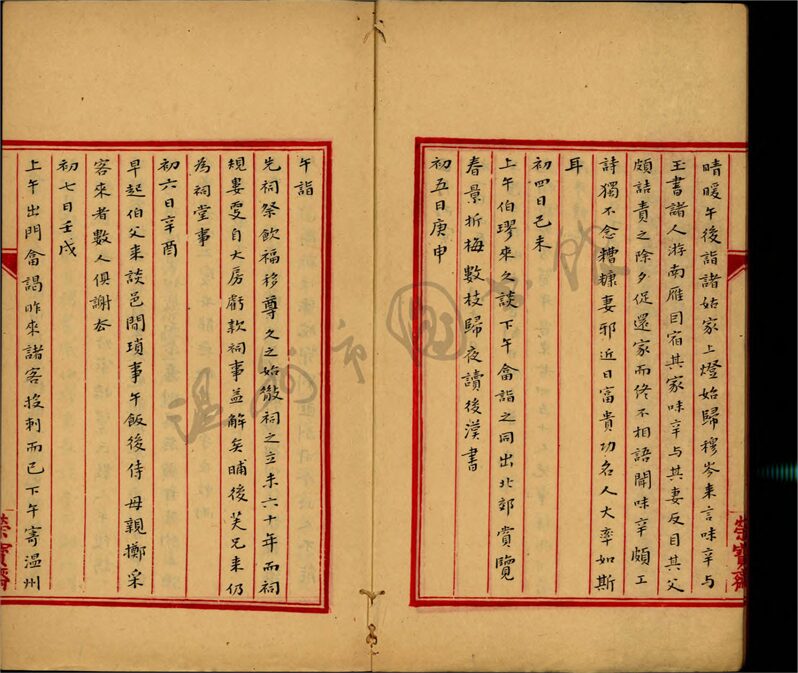 晴暖午後詣諸姑家上燈始歸穆岑来言味辛与
玉書諸人游南雁囙宿其家味辛与其妻反目其父
頗詰責之除夕促還家而佟不相語聞味辛頗工
詩獨不念糟糠妻邪近日富貴功名人大率如斯
耳
初四日己未
上午伯璆来久談下午畣詣之同出北郊賞覽
春景折梅數枝歸夜讀後漢書
初五日庚申
午詣
先祠祭飲福移尊久之始散祠之立未六十年而祠
規婁更自大房虧款祠事益解矣晡後芙兄来仍
為祠堂事
初六日辛酉
早起伯父来談邑間瑣事午飯後侍 母親擲采
客來者數人俱謝去
初七日壬戌
上午出門畣謁昨来諸客投刺而已下午寄温州
榮寶齋
榮寶齋
温州市圖書館